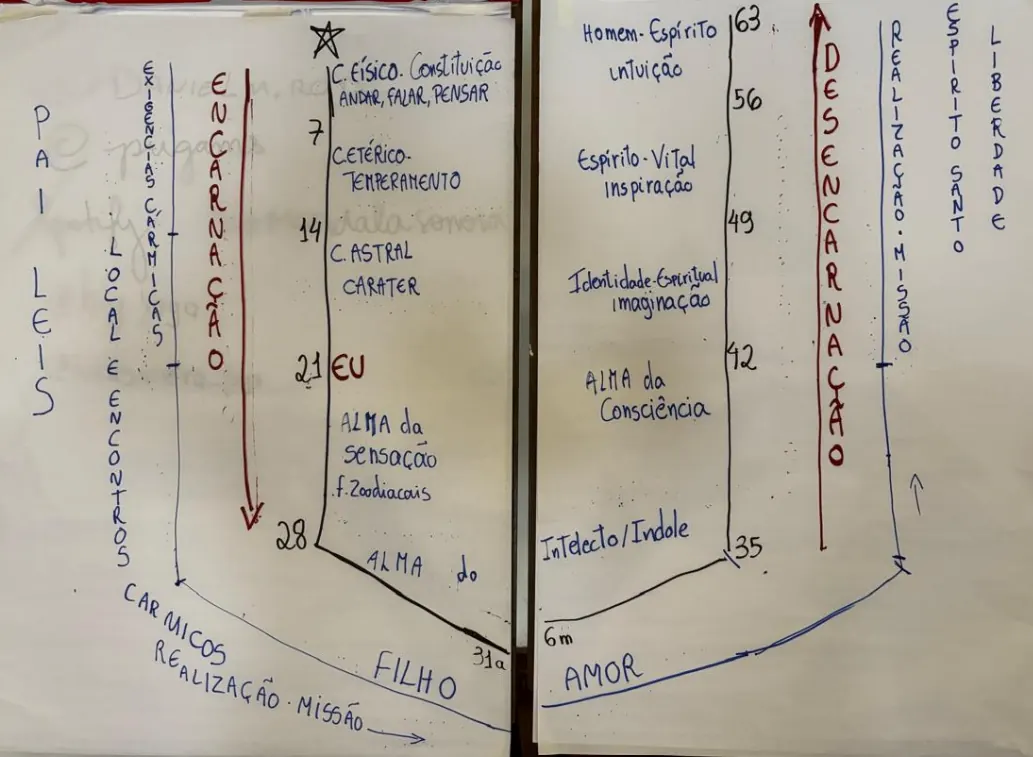 PAI LEIS
EXIGÊNCIAS CÁRMICAS
LOCAL E ENCONTROS
CARMICOS
REALIZAÇÃO . MISSÃO
ENCARNAÇÃO
C. FÍSICO. Constituição
ANDAR, FALAR, PENSAR
7
C.ETÉRICO.
TEMPERAMENTO
14
C. ASTRAL
CARATER
21 EU
ALMA da
sensação
.f. Zoodiacais
28
ALMA do
31a
FILHO
Homem-Espírito
intuição
63
56
Espírito-Vital
inspiração
49
Identidade-Espiritual
imaginação
42
ALMA da
Consciência
Intelecto/Indole
35
6m
AMOR
DESENCARNAÇÃO
REALIZAÇÃO . MISSÃO
ESPIRITO SANTO
LIBERDADE